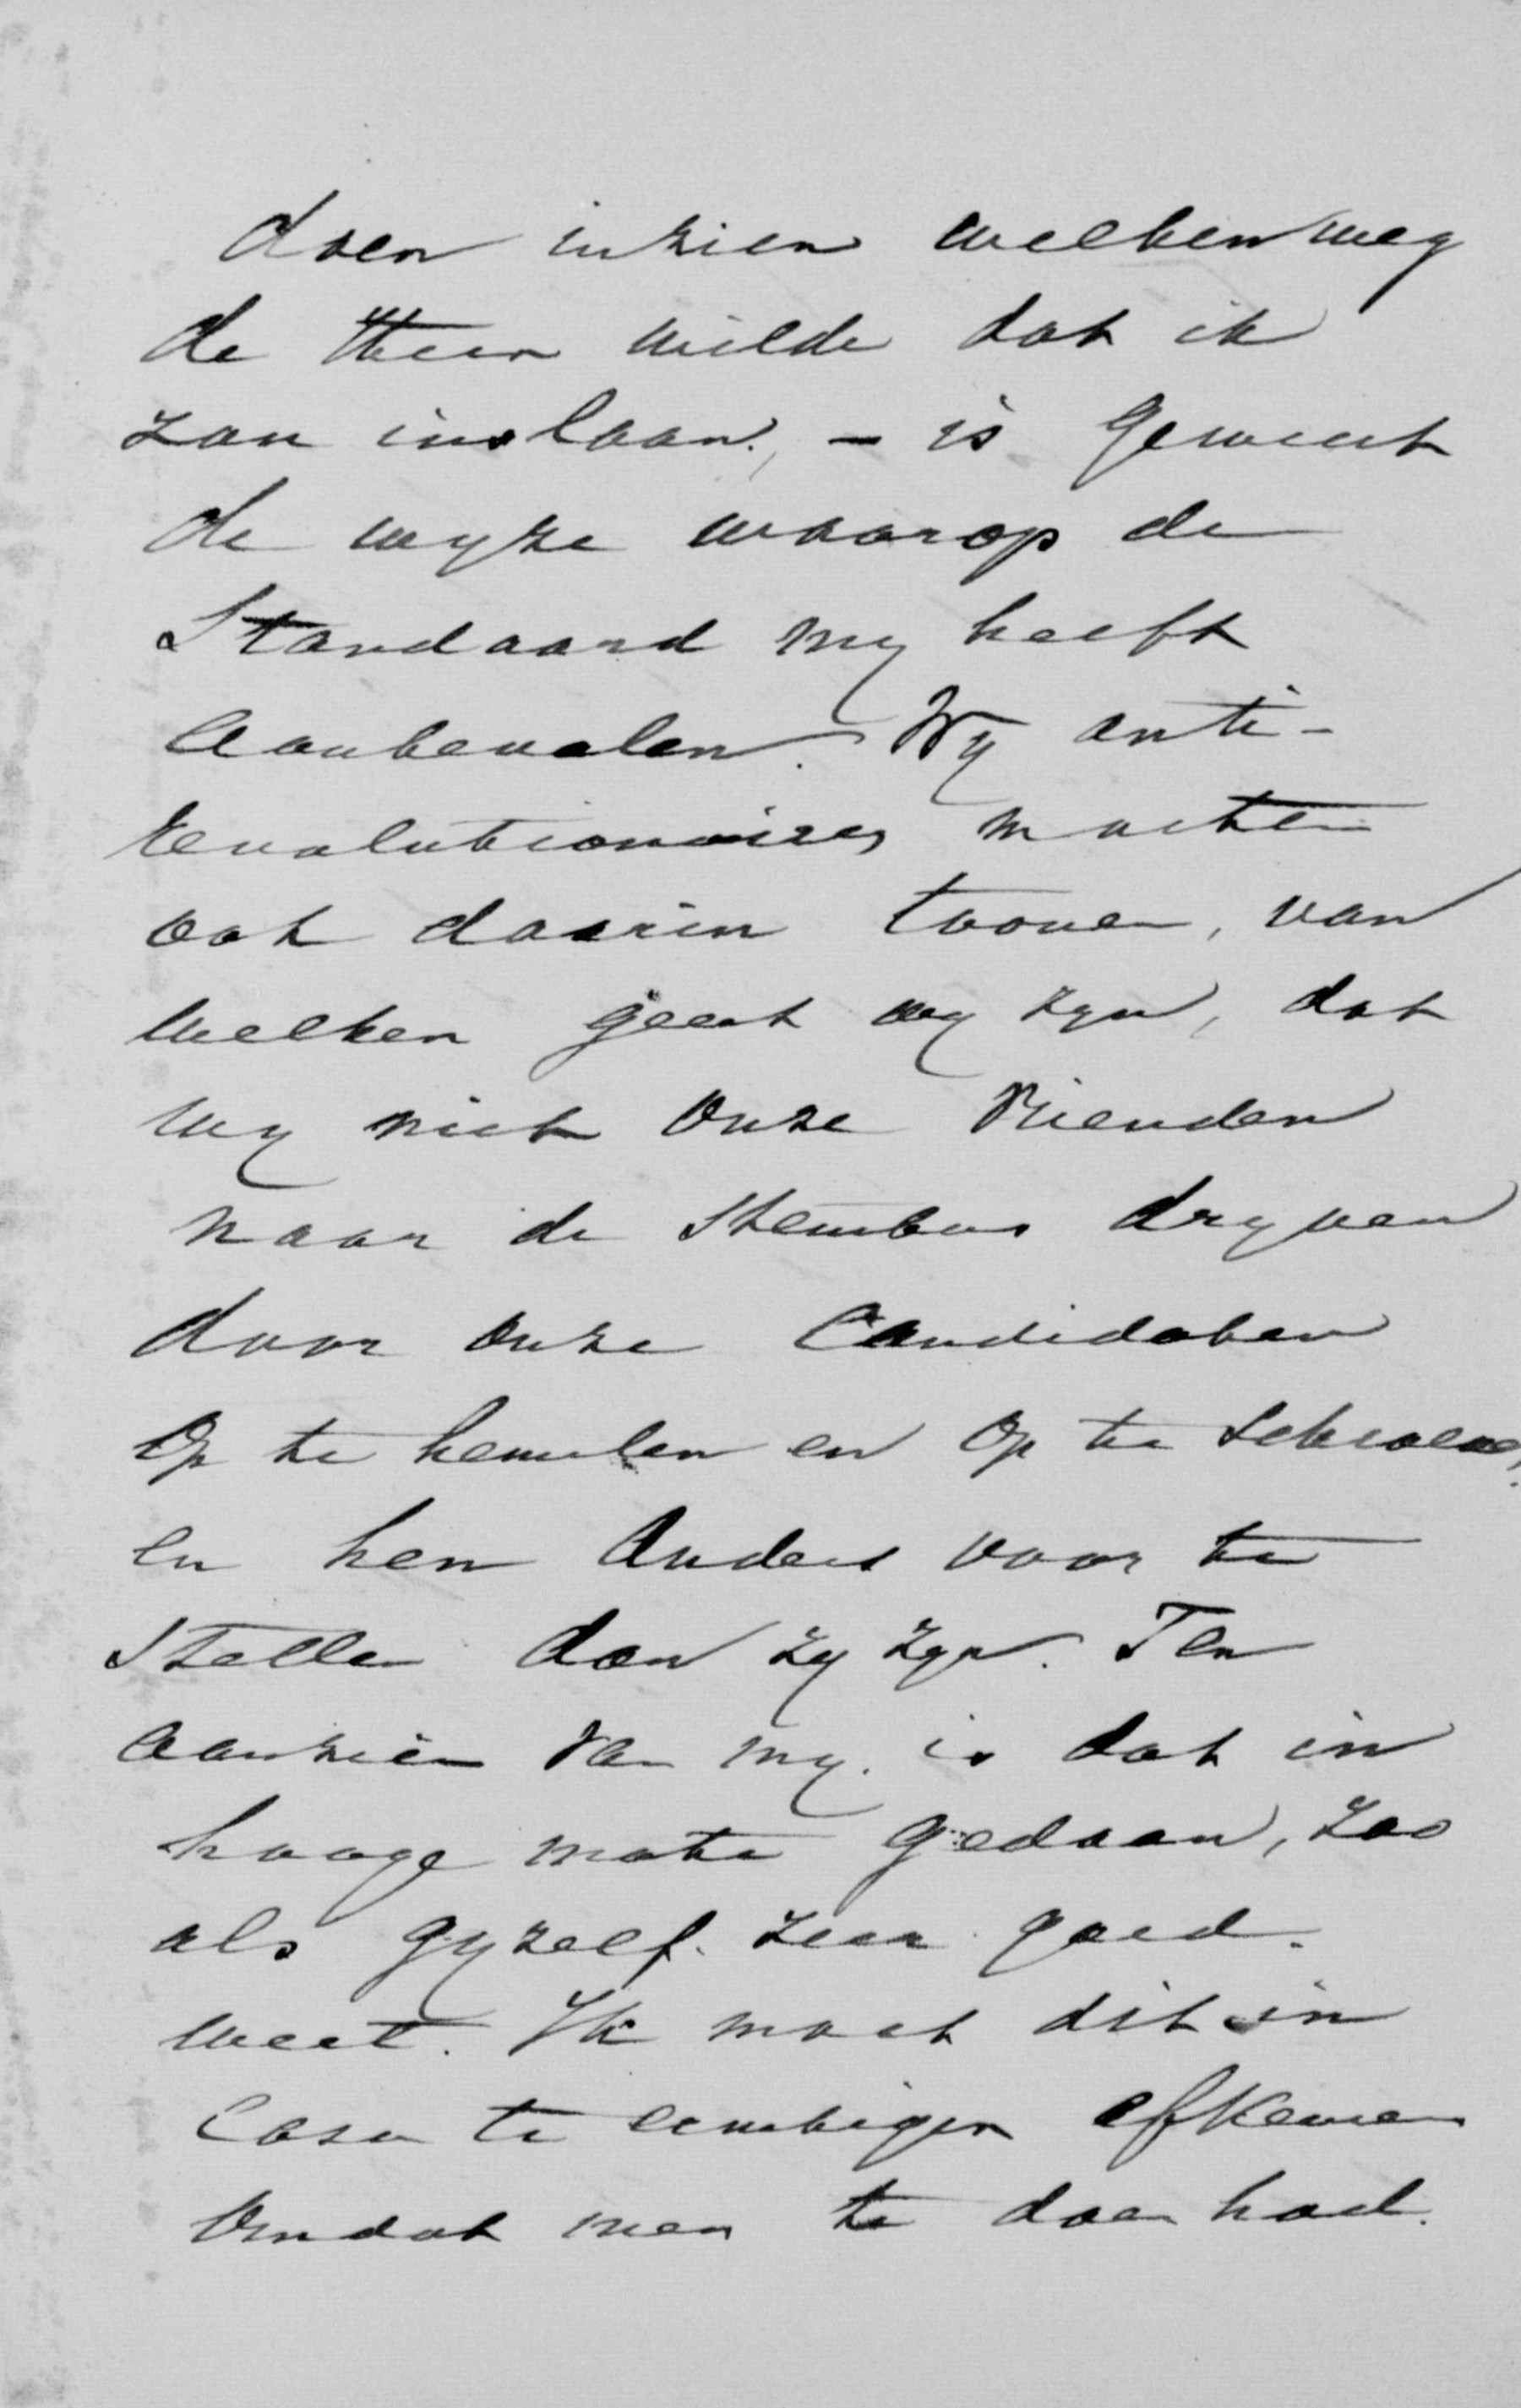 doen inzien welken weg
de Heer wilde dat ik
zou inslaan, – is geweest
de wyze waarop de
Standaard my heeft
aanbevolen. Wy anti-
revolutionaires moeten
ook daarin toonen, van
welken geest wy zyn, dat
wy niet onze vrienden
naar de stembus dryven
door onze Candidaten
op te hemelen en op te schroeven,
en hen anders voor te
stellen dan zy zyn. Ten
aanzien van my is dat in
hooge mate gedaan, zoo
als gyzelf zeer goed
weet. Ik moet dit in
casu te ernstiger afkeuren
omdat men te doen had.